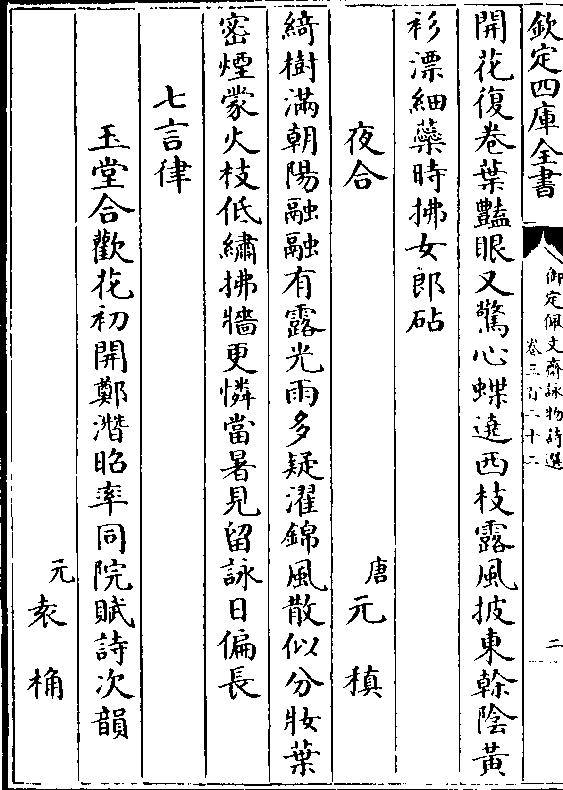 欽定四庫全書
御定佩文齋詠物詩選
卷三百二十二
二
開花復卷葉豔眼又驚心蝶遶西枝露風披東榦陰黃
衫漂細蘂時拂女郎砧
夜合
唐元稹
綺樹滿朝陽融融有露光雨多疑濯錦風散似分妝葉
密煙蒙火枝低繡拂牆更憐當暑見留詠日偏長
七言律
玉堂合歡花初開鄭潛昭率同院賦詩次韻
元袁桷